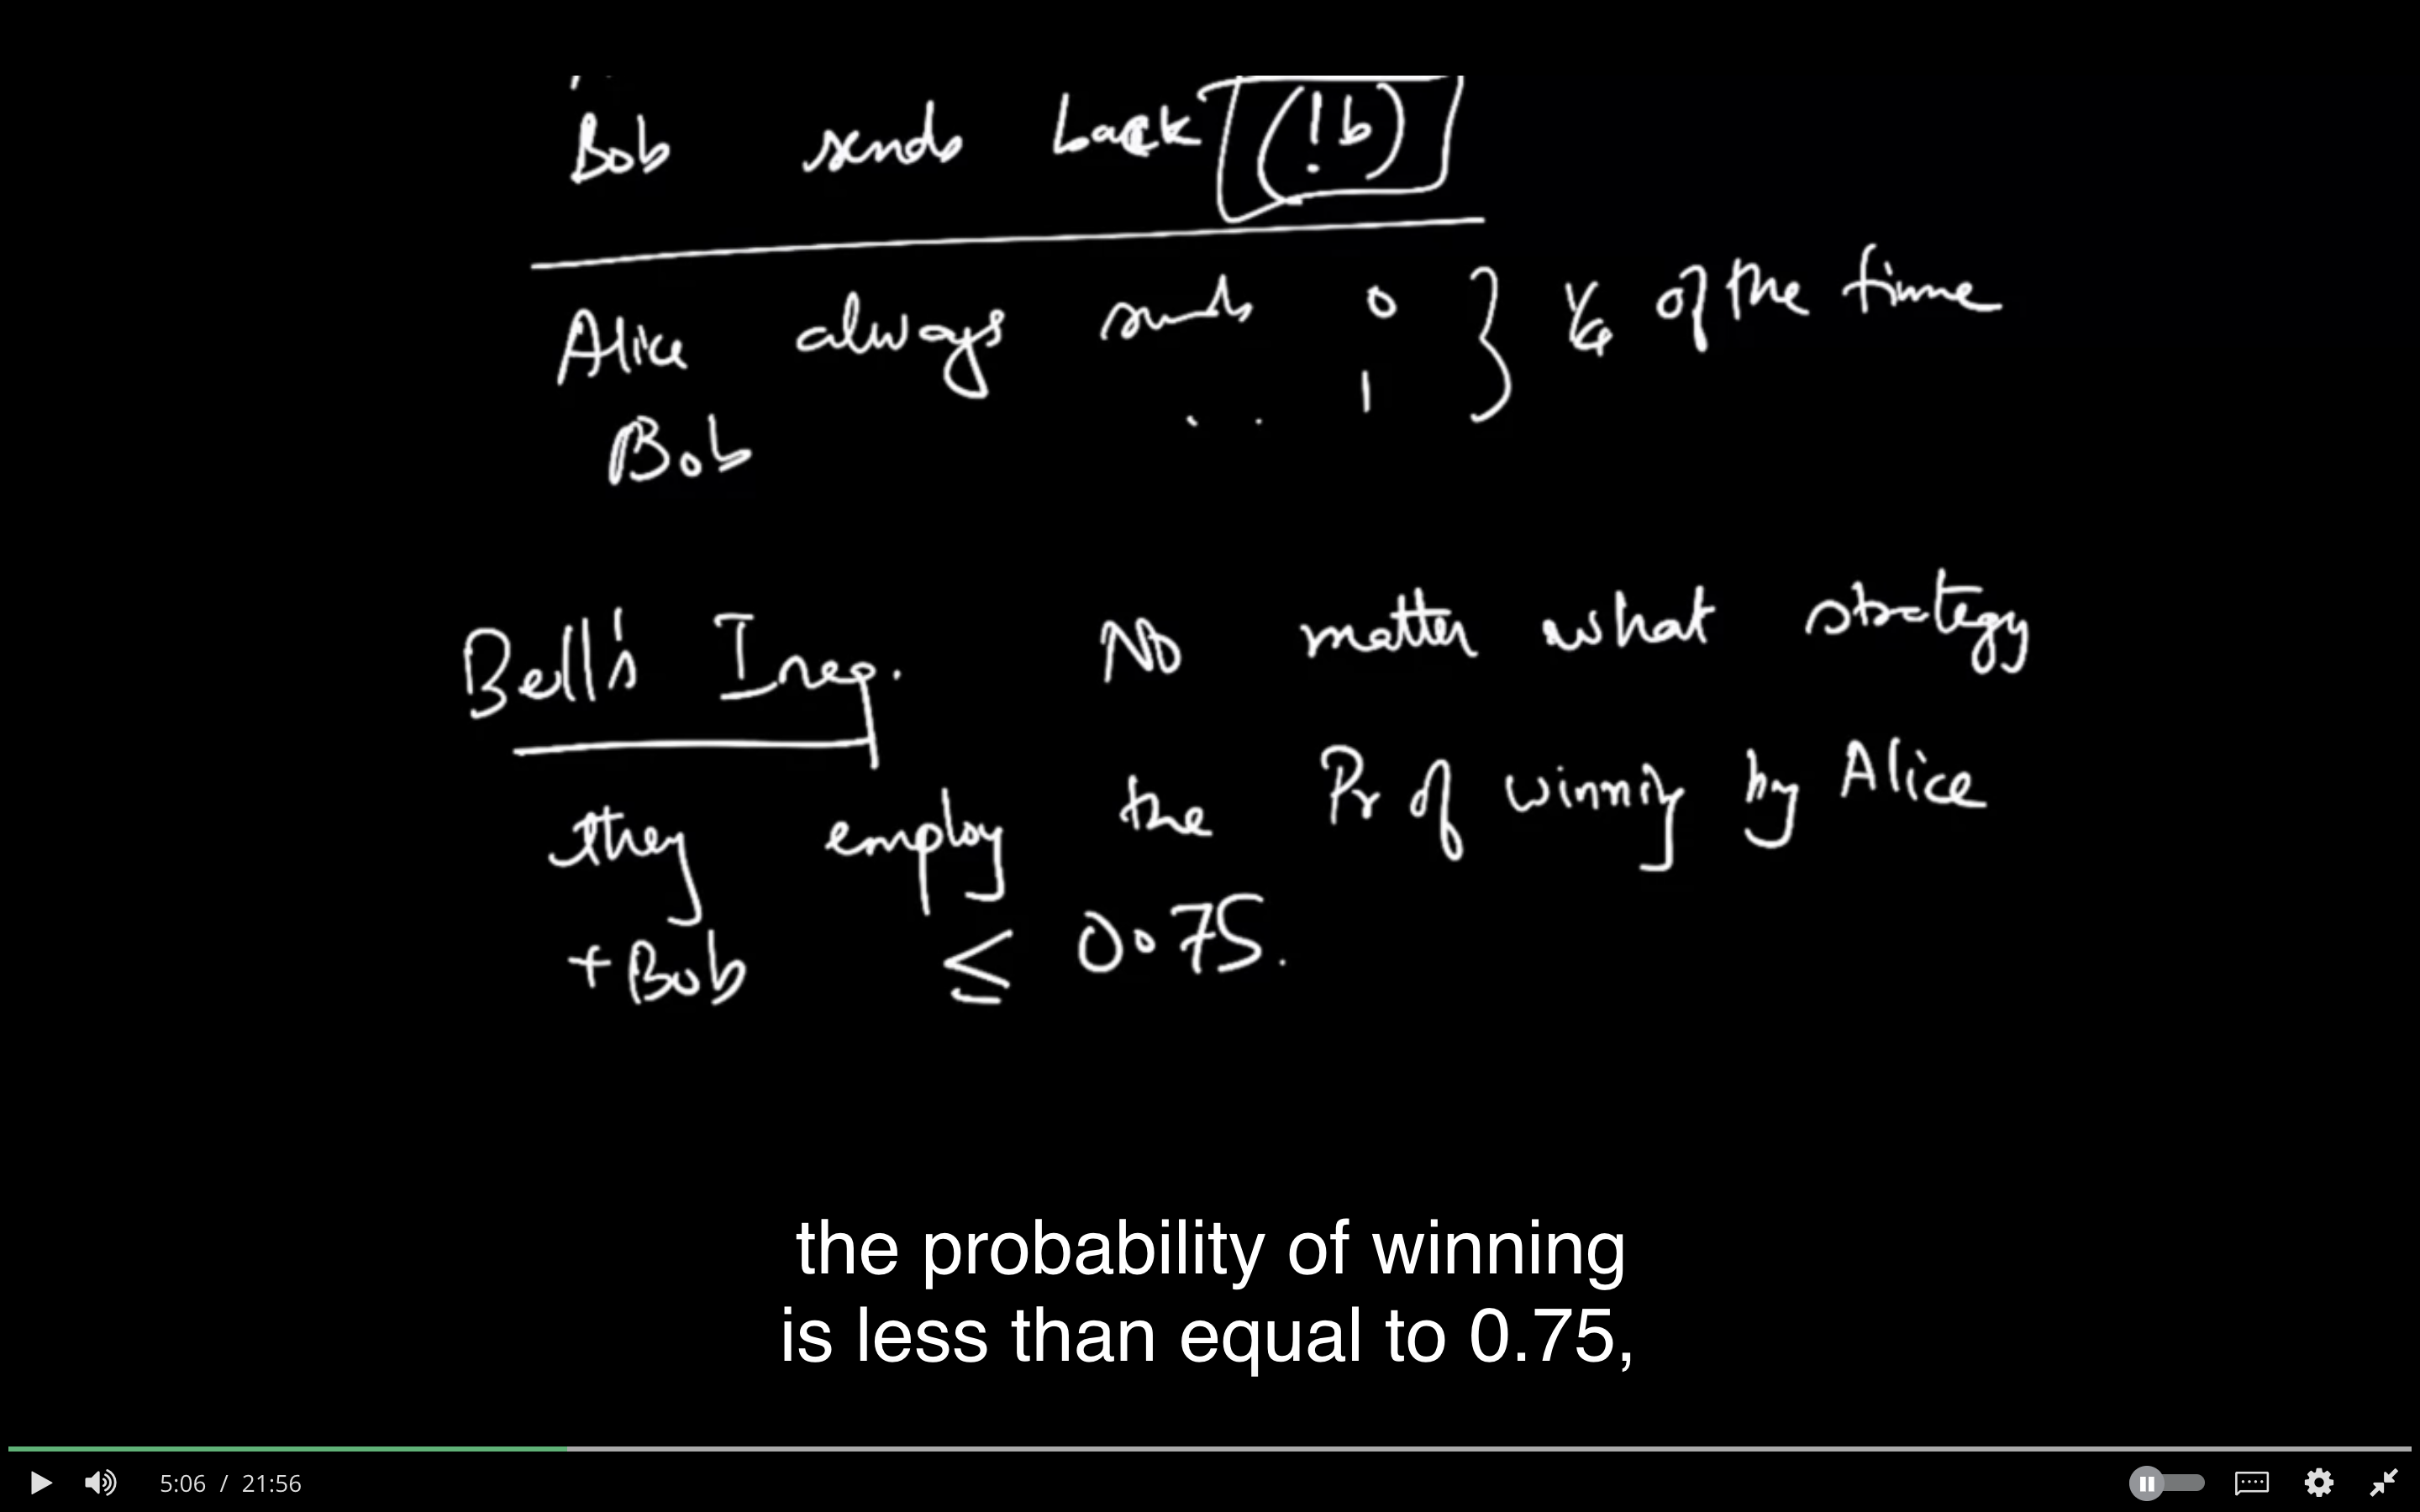 Bob sends back (!b)
Alice always sends 0 } 1/4 of the time
Bob .. 1
Bell's Ineq. No matter what strategy
they employ the Pr of winning by Alice
+ Bob ≤ 0.75.
the probability of winning
is less than equal to 0.75,
5:06 / 21:56